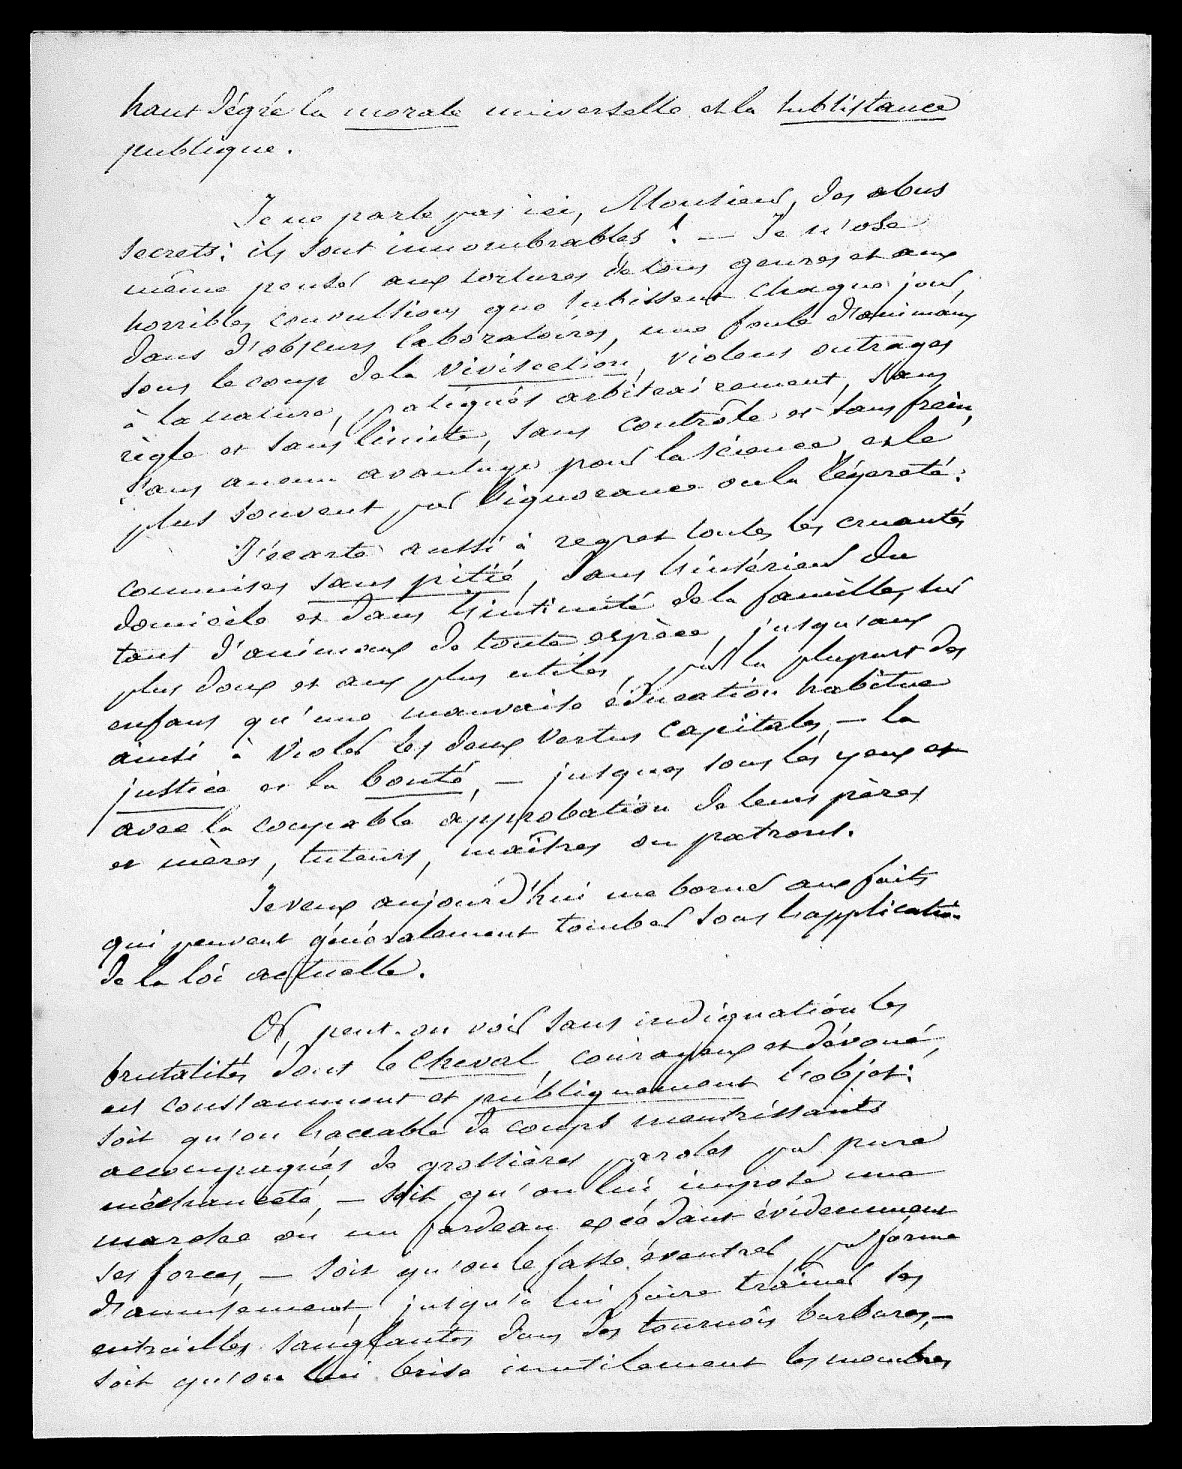 haut dégré la morale universelle et la subsistance
publique.
Je ne parle pas ici, Monsieur, des abus
secrets: ils sont innombrables! — Je n'ose
même penser aux tortures de tous genres et aux
horribles convultions que subissent chaque jour,
dans d'obscurs laboratoires, une foule d'animaux
sous le coup de la vivisection, violens outrages
à la nature, pratiqués arbitrairement, sans
règle et sans limite, sans contrôle et sans frein,
sans aucun avantage pour la science et le
plus souvent par l'ignorance ou la légereté.
J'écarte aussi à regret toutes les cruautés
commises sans pitié, dans l'intérieur du
domicile et dans l'intimité de la famille, sur
tant d'animaux de toute espèce, jusqu'aux
plus doux et aux plus utiles, par la plupart des
enfans qu'une mauvaise éducation habitue
ainsi à violer les deux vertus capitales, — la
justice et la bonté, — jusques sous les yeux et
avec la coupable approbation de leurs pères
et mères, tuteurs, maîtres ou patrons.
Je veux aujourd'hui me borner aux faits
qui peuvent généralement tomber sous l'application
de la loi actuelle.
Or, peut-on voir sans indignation les
brutalités dont le cheval, courageux et dévoué,
est constamment et publiquement l'objet:
soit qu'on l'accable de coups meurtrissants
accompagnés de grossières paroles par pure
méchanceté, — soit qu'on lui impose une
marche ou un fardeau excédant évidemment
ses forces, — soit qu'on le fasse éventrer, par forme
d'amusement, jusqu'à lui faire traîner ses
entrailles sanglantes dans des tournois barbares, —
soit qu'on lui brise inutilement les membres